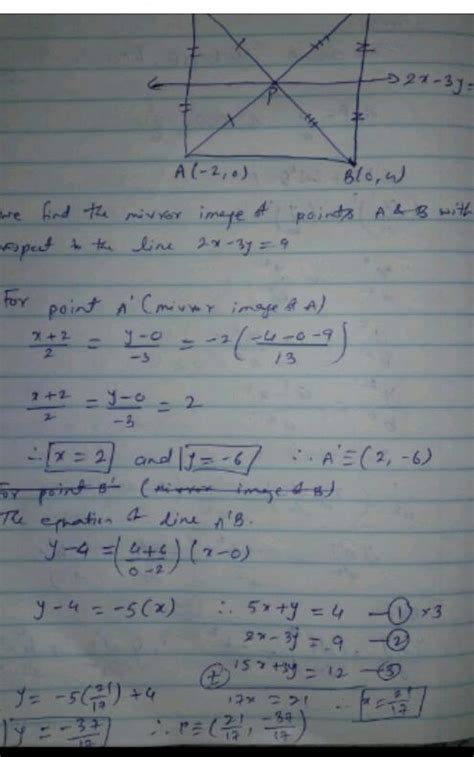 2x-3y=
P
A(-2,0)
B(0,4)
we find the mirror image of points A & B with
respect to the line 2x-3y=9
For point A' (mirror image of A)
x+2/2 = y-0/-3 = -2(-4-0-9/13)
x+2/2 = y-0/-3 = 2
∴ x=2 and y=-6 ∴ A'≡(2,-6)
For point B' (mirror image of B)
The equation of line A'B.
y-4=(4+6/0-2)(x-0)
y-4=-5(x) ∴ 5x+y=4 —① ×3
2x-3y=9 —②
+ 15x+3y=12 —③
y=-5(21/17)+4 17x=21 ∴ x=21/17
y=-37/17 ∴ P≡(21/17, -37/17)